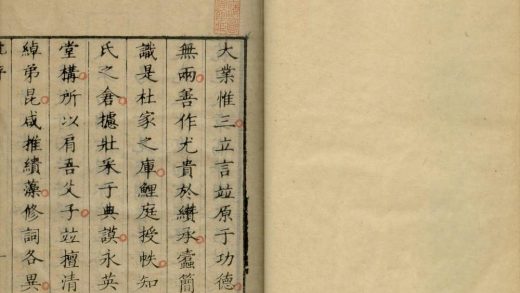 大業惟三立言竝原于功德
無兩善作尤貴於纘承蠹簡
識是杜家之庫鯉庭授帙知
氏之倉攄壯采于典謨永英
堂構所以肩吾父子竝擅清
綽弟昆咸推繢藻修詞各異